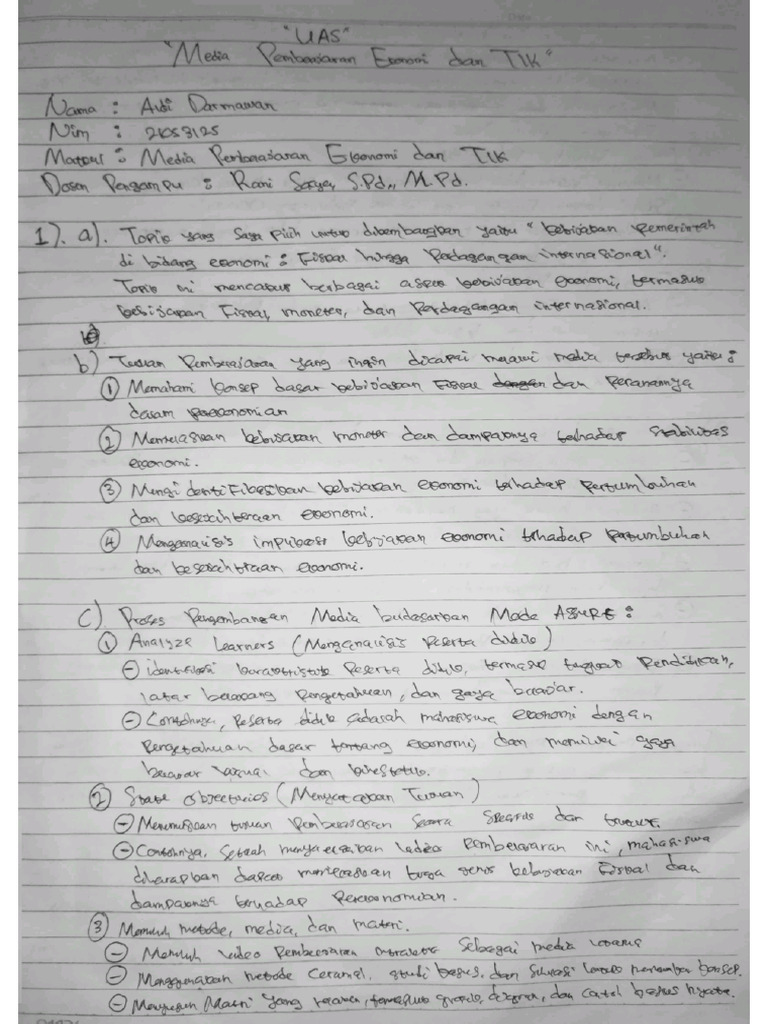 "UAS"
"Media Pembelajaran Ekonomi dan TIK"
Nama : Aldi Darmawan
Nim : 21053125
Matkul : Media Pembelajaran Ekonomi dan TIK
Dosen Pengampu : Rani Sofya, S.Pd., M.Pd.
1). a). Topik yang saya pilih untuk dikembangkan yaitu "kebijakan Pemerintah
di bidang ekonomi : Fiskal hingga Perdagangan internasional".
Topik ini mencakup berbagai aspek kebijakan ekonomi, termasuk
kebijakan Fiskal, moneter, dan Perdagangan internasional.
b) Tujuan Pembelajaran yang ingin dicapai melalui media tersebut yaitu :
① Memahami konsep dasar kebijakan Fiskal dan Peranannya
dalam perekonomian
② Menjelaskan kebijakan moneter dan dampaknya terhadap stabilitas
ekonomi.
③ Mengidentifikasikan kebijakan ekonomi terhadap Pertumbuhan
dan kesejahteraan ekonomi.
④ Menganalisis implikasi kebijakan ekonomi terhadap Pertumbuhan
dan kesejahteraan ekonomi.
C). Proses Pengembangan Media berdasarkan Mode ASSURE :
① Analyze Learners (Menganalisis Peserta didik)
- identifikasi karakteristik Peserta didik, termasuk tingkat Pendidikan,
latar belakang Pengetahuan, dan gaya belajar.
- Contohnya, Peserta didik adalah mahasiswa ekonomi dengan
Pengetahuan dasar tentang ekonomi, dan memiliki gaya
belajar visual dan kinestetik.
② State objectives (Menyatakan Tujuan)
- Merumuskan tujuan Pembelajaran secara spesifik dan terukur.
- Contohnya, Setelah menyelesaikan Pembelajaran ini, mahasiswa
diharapkan dapat menjelaskan jenis kebijakan Fiskal dan
dampaknya terhadap Perekonomian.
③ Memilih metode, media, dan materi.
- Memilih video Pembelajaran interaktif sebagai media utama
- Menggunakan metode ceramah, studi kasus, dan simulasi untuk konsep.
- Menyusun Materi yang relevan, termasuk grafik, diagram, dan kasus nyata.